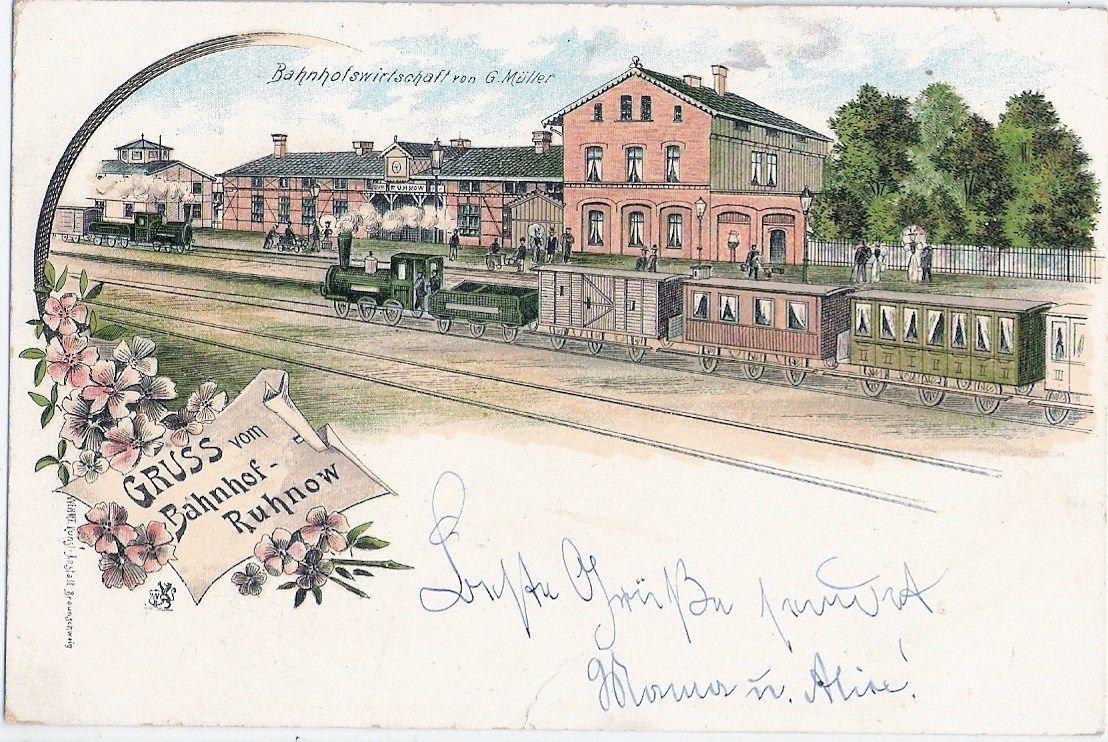 Bahnhofswirtschaft von G. Müller
RUHNOW
GRUSS vom
Bahnhof-
Ruhnow
Beste Grüße sendet
Mama u. Alice!
II II II II II
III